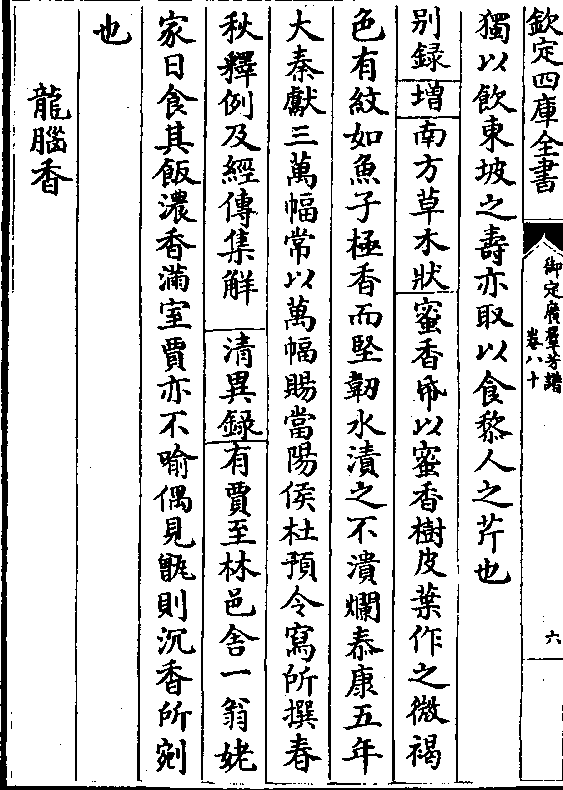 欽定四庫全書
御定廣羣芳譜
卷八十
六
獨以飲東坡之壽亦取以食黎人之芹也
别録 增 南方草木狀 蜜香帋以蜜香樹皮葉作之微褐
色有紋如魚子極香而堅韌水漬之不潰爛泰康五年
大秦獻三萬幅常以萬幅賜當陽侯杜預令寫所撰春
秋釋例及經傳集解 清異録 有賈至林邑舍一翁姥
家日食其飯濃香滿室賈亦不喻偶見甑則沉香所剜
也
龍腦香